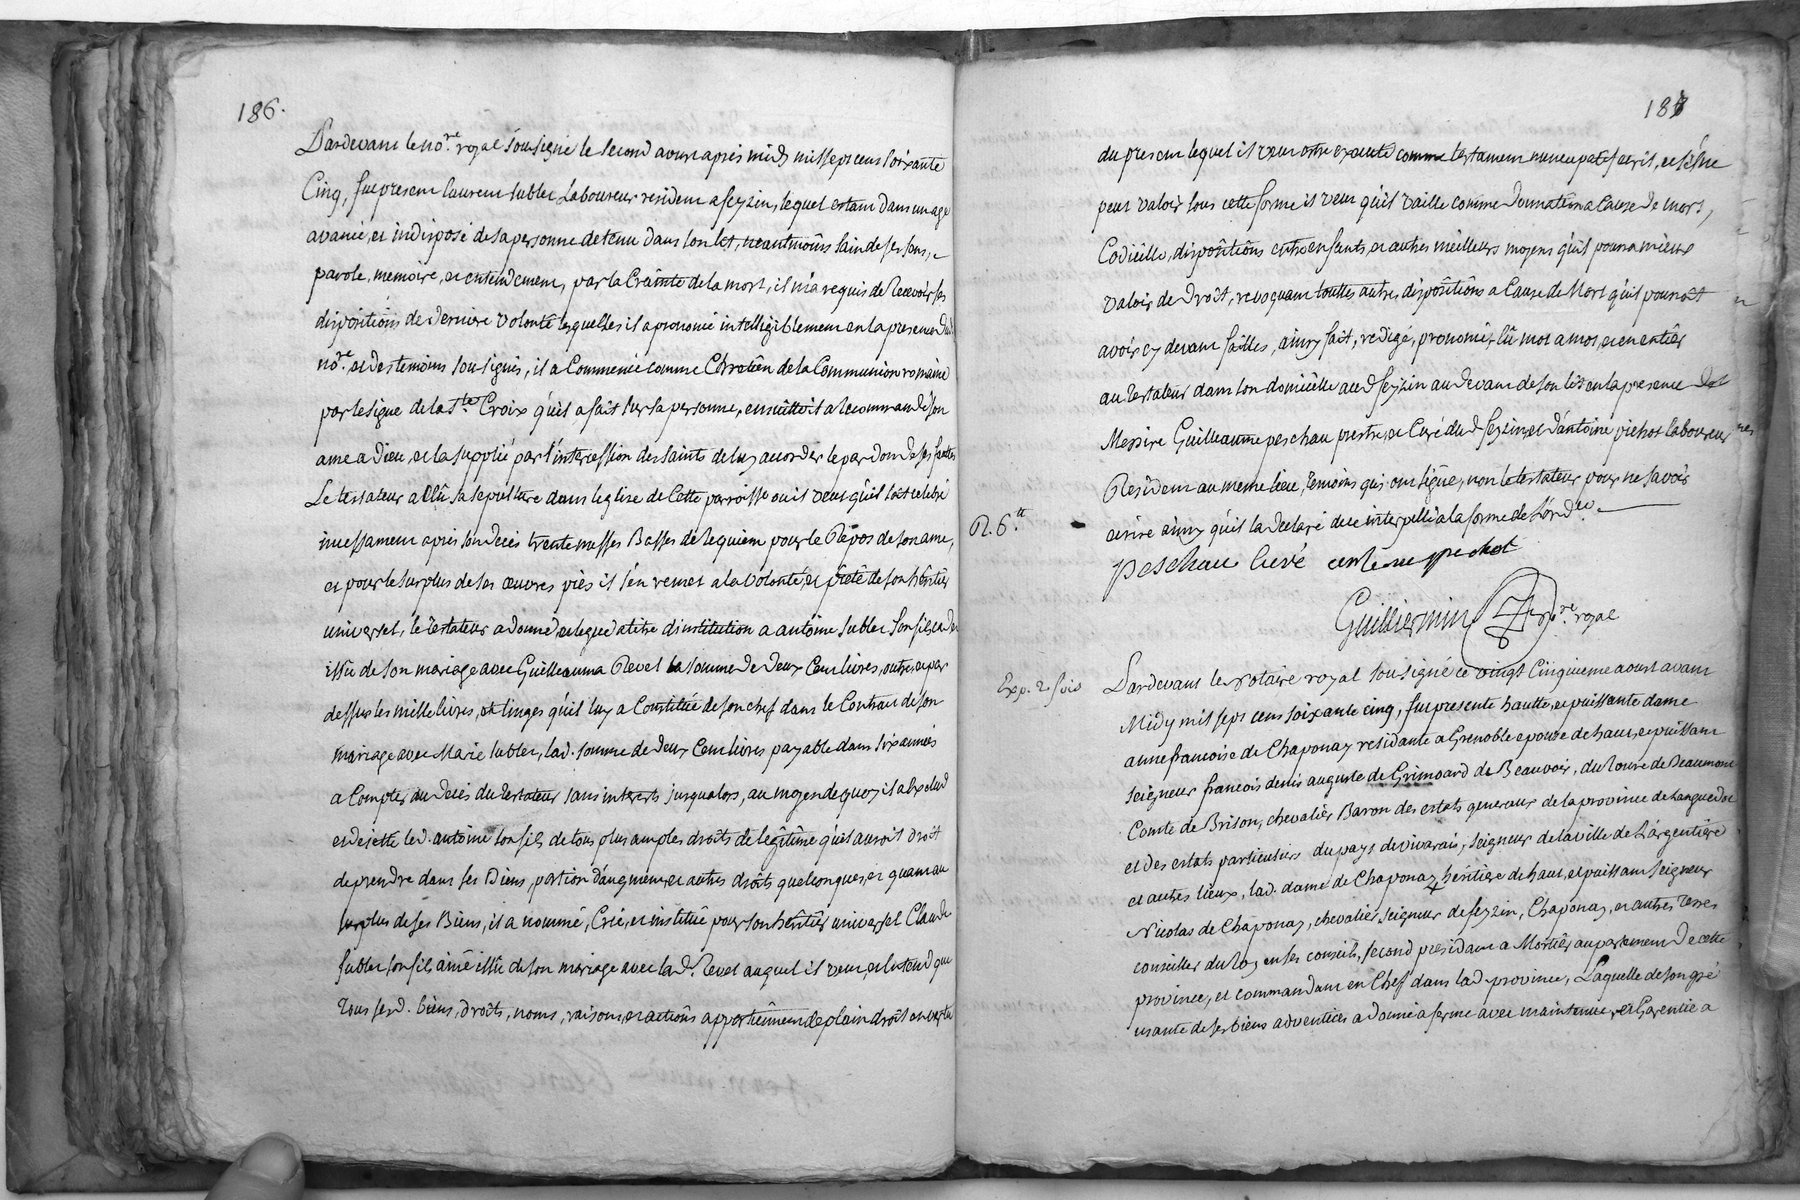 186.
Pardevant le no.re royal sousigné le second aoust apres midy mil sept cens soixante
Cinq, fut present laurent sublet Laboureur resident a feyzin, lequel estant dans un age
avancé, et indisposé de sa personne detenu dans son lit, neantmoins sain de ses sens,
parole, memoire, et entendement, par la Crainte de la mort, il m'a requis de Recevoir ses
dispositions de derniere volonté lesquelles il a prononcé intelligiblement en la presence dud.
no.re et des temoins sousignés, il a Commencé comme Chretien de la Communion romaine
par le signe de la s.te Croix qu'il a fait sur sa personne, ensuitte il a recommandé son
ame a Dieu, et la supplié par l'intercession des saints de luy accorder le pardon de ses fautes
Le testateur a Elû sa sepulture dans leglise de Cette parroisse ou il veut qu'il soit celebré
incessament apres son decés trente messes Basses de requiem pour le Repos de son ame,
et pour le surplus de ses œuvres pies il s'en remet a la volonté, et pieté de son héritier
universel, le testateur a donné, et legué a titre d'institution a antoine sublet son fils cadet
issu de son mariage avec Guilleauma Revel la somme de deux Cent livres, outre et par
dessus les mille livres, et linges qu'il luy a Constituée de son chef dans le Contrat de son
mariage avec Marie sublet, lad. somme de deux Cent livres payable dans six années
a Compter du decés du testateur sans interets jusqu'alors, au moyen de quoy il a Exclud
et dejette led. antoine son fils de tous plus amples droits de legitime qu'il auroit droit
de prendre dans ses Biens, portion d'augment, et autres droits quelconques, et quant au
surplus de ses Biens, il a nommé, Créé, et institué pour son héritier universel Claude
sublet son fils ainé issu de son mariage avec lad. Revel auquel il veut, et entend que
tous sesd. biens, droits, noms, raisons, et actions appartiennent de plain droit en vertu
187
du present lequel il veut estre executé comme testament nuncupatif ecrit, et s'il ne
peut valoir sous cette forme il veut qu'il vaille comme donnation a Cause de mort,
Codicille, dispositions entre enfants, et autres meilleurs moyens qu'il pourra mieux
valoir de droit, revoquant touttes autres dispositions a Cause de Mort qu'il pourroit
avoir cy devant faittes, ainsy fait, redigé, prononcé, lû mot a mot, et en entier
au testateur dans son domicille aud. feyzin au devant de son lit en la presence de
Messire Guilleaume peschau prestre, et Curé dud. feyzin, et d'antoine pichot laboureur
Resident au meme lieu, temoins qui ont signé, non le testateur pour ne savoir
R. 6.tt
ecrire ainsy qu'il la declaré de ce interpellé a la forme de L'ord.ce
peschau curé antoine pichot
Guilliermin no.re royal
Exp. 2. fois
Pardevant le Notaire royal sousigné ce vingt Cinquieme aoust avant
Midy mil sept cens soixante cinq, fut presente hautte, et puissante dame
anne francoise de Chaponay residante a Grenoble epouse de haut, et puissant
seigneur francois denis auguste de Grimoard de Beauvoir, du Roure de Beaumont
Comte de Brison, chevalier Baron des estats generaux de la province de Languedoc
et des estats particuliers du pays de vivarais, seigneur de la ville de L'argentiere
et autres lieux, lad. dame de Chaponay héritiere de haut, et puissant seigneur
Nicolas de Chaponay, chevalier seigneur de feyzin, Chaponay, et autres terres
conseiller du roy en ses conseils, second president a Mortier au parlement de cette
province, et commandant en Chef dans lad. province, Laquelle de son gré
usante de ses biens adventices a donné a ferme avec maintenue, et Garentie a